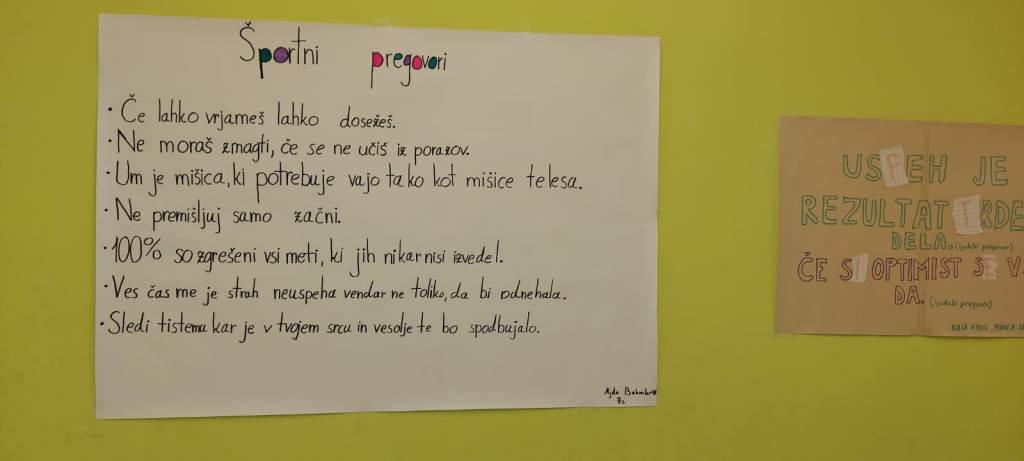 Športni pregovori
• Če lahko vrjameš lahko dosežeš.
• Ne moraš zmagti, če se ne učiš iz porazov.
• Um je mišica, ki potrebuje vajo tako kot mišice telesa.
• Ne premišljuj samo začni.
• 100% so zgrešeni vsi meti, ki jih nikar nisi izvedel.
• Ves čas me je strah neuspeha vendar ne toliko, da bi odnehala.
• Sledi tistemu kar je v tvojem srcu in vesolje te bo spodbujalo.
Ajda
7c
USPEH JE
REZULTAT TRDE
DELA. (ljudski pregovor)
ČE SI OPTIMIST SE V
DA. (ljudski pregovor)
KAJA VIDIC, MANCA